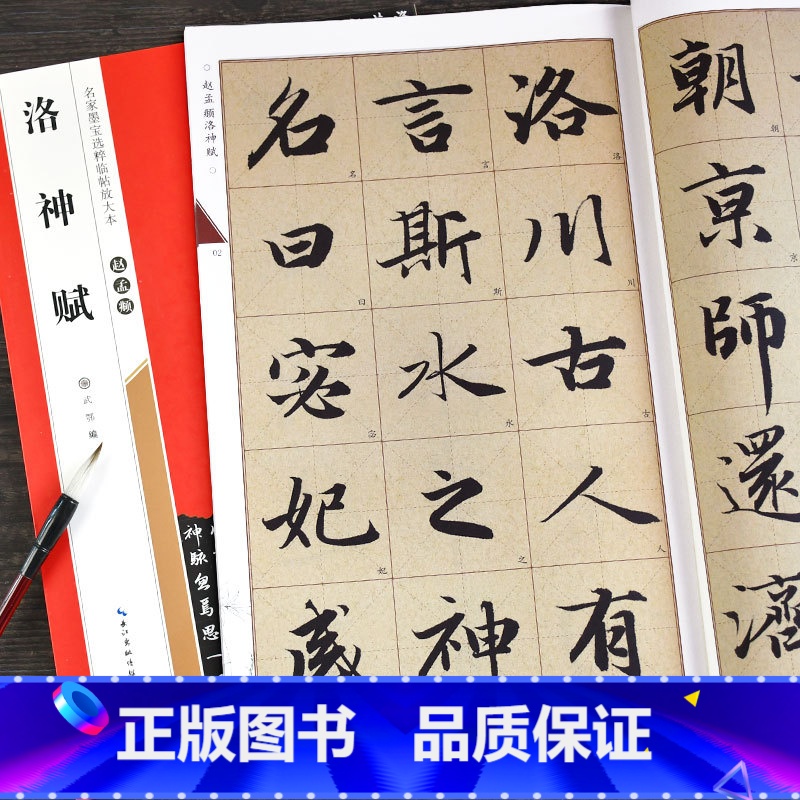 洛神赋
名家墨宝选粹临帖放大本
赵孟頫
武鄂 编
神眽忽焉思
赵孟頫洛神赋
02
朝
京师還濟
洛川古人有
言斯水之神
名曰宓妃感
洛 川 古 人
言 斯 水 之
名 曰 宓 妃
朝
京
正版图书 品质保证